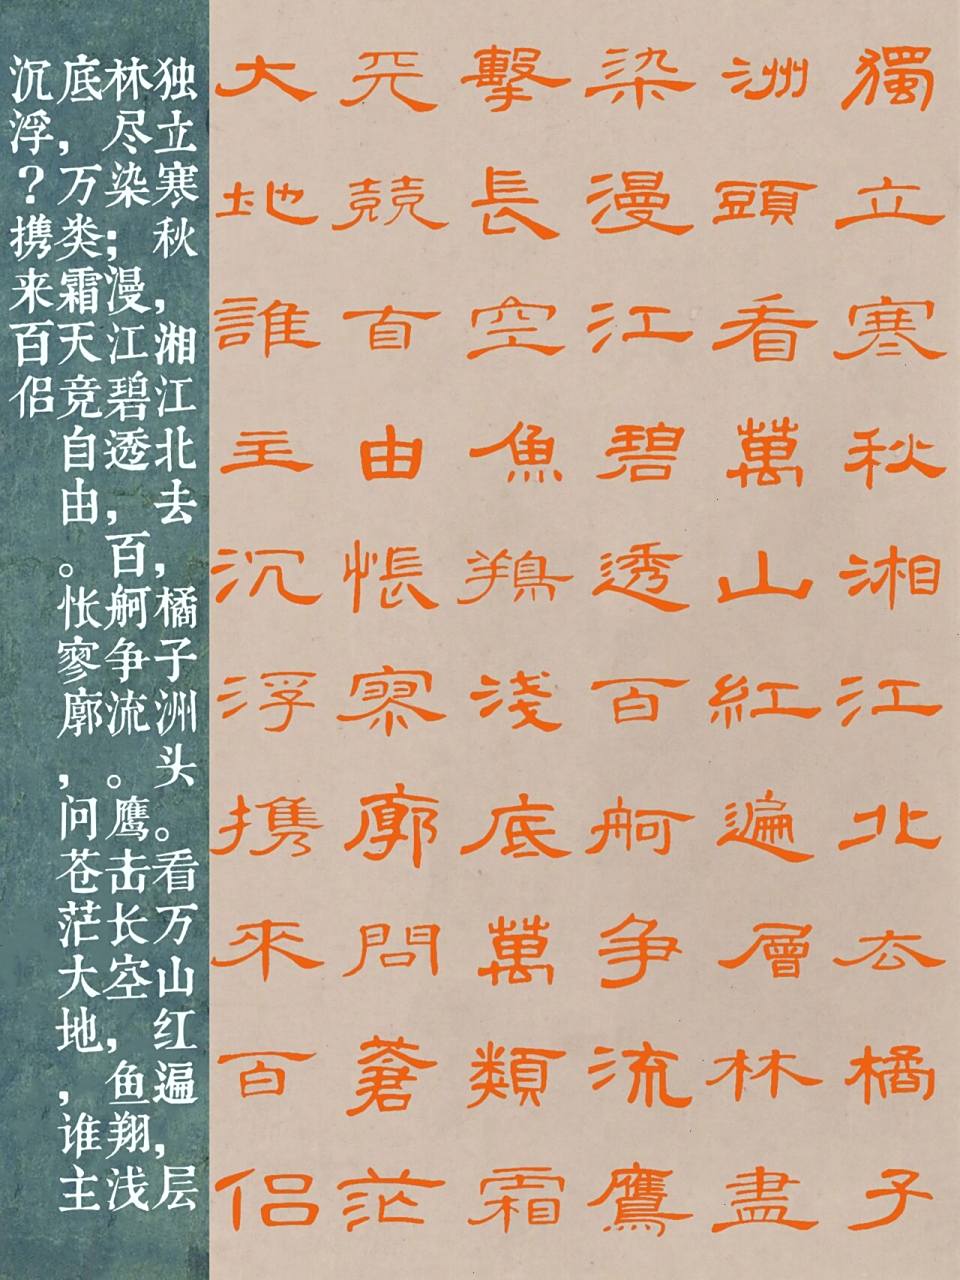 獨立寒秋湘江北去橘子
洲頭看萬山紅遍層林盡
染漫江碧透百舸争流鷹
擊長空魚翔淺底萬類霜
天競自由悵寥廓問蒼茫
大地誰主沉浮携來百侣
独立寒秋，湘江北去，橘子洲头。看万山红遍，层
林尽染；漫江碧透，百舸争流。鹰击长空，鱼翔浅
底，万类霜天竞自由。怅寥廓，问苍茫大地，谁主
沉浮？携来百侣